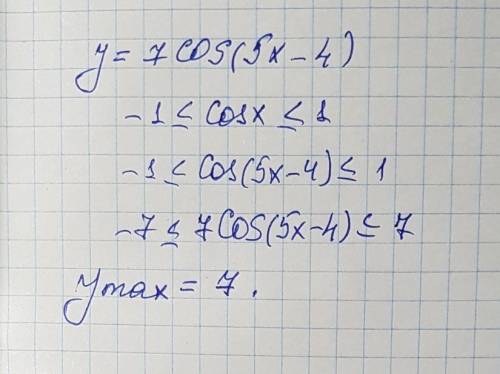 y = 7 cos(5x - 4)
-1 ≤ cosx ≤ 1
-1 ≤ cos(5x-4) ≤ 1
-7 ≤ 7cos(5x-4) ≤ 7
ymax = 7.